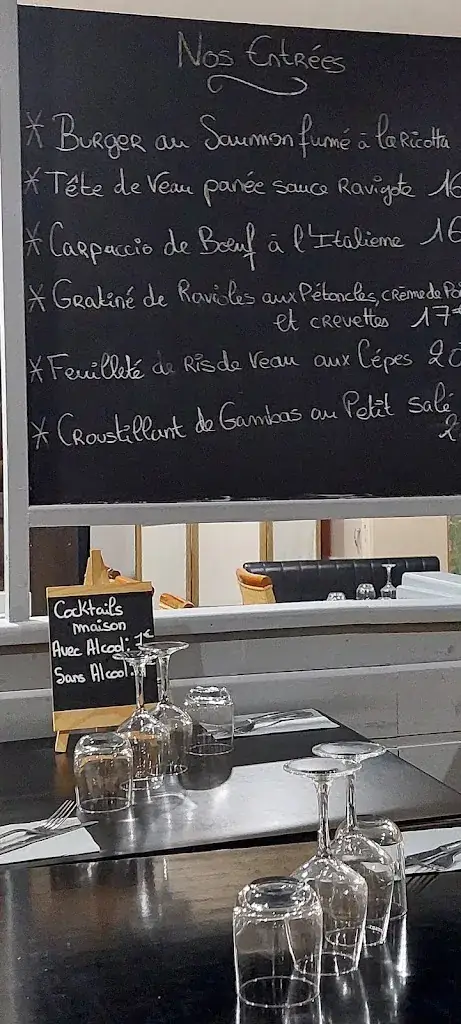 Nos Entrées
* Burger au Saumon fumé à la Ricotta
* Tête de Veau panée sauce Ravigote 16
* Carpaccio de Bœuf à l'Italienne 16
* Gratiné de Ravioles aux Pétoncles, crème de Poi
et crevettes 17€
* Feuilleté de Ris de Veau aux Cépes 20
* Croustillant de Gambas au Petit salé
2
Cocktails
maison
Avec Alcool:
Sans Alcool: